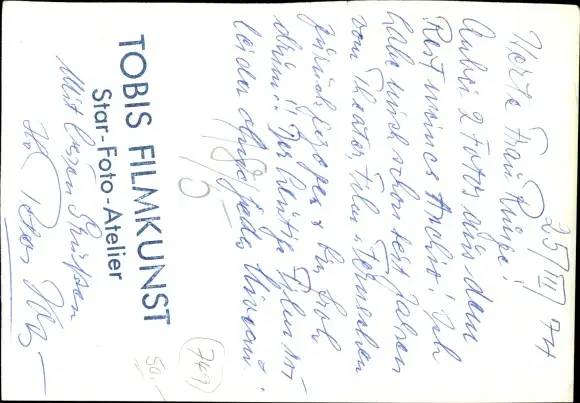 25/III/74
Werte Frau
Anbei 2 Fotos aus dem
Rest meines Archivs! Ich
habe mich schon seit Jahren
vom Theater, Film u. Fernsehen
zurückgezogen & bin froh
drum! Der heutige Film ist
leider ohne jedes Niveau!
TOBIS FILMKUNST
Star-Foto-Atelier
Mit besten Grüßen
Ihr Peter
749
50.-